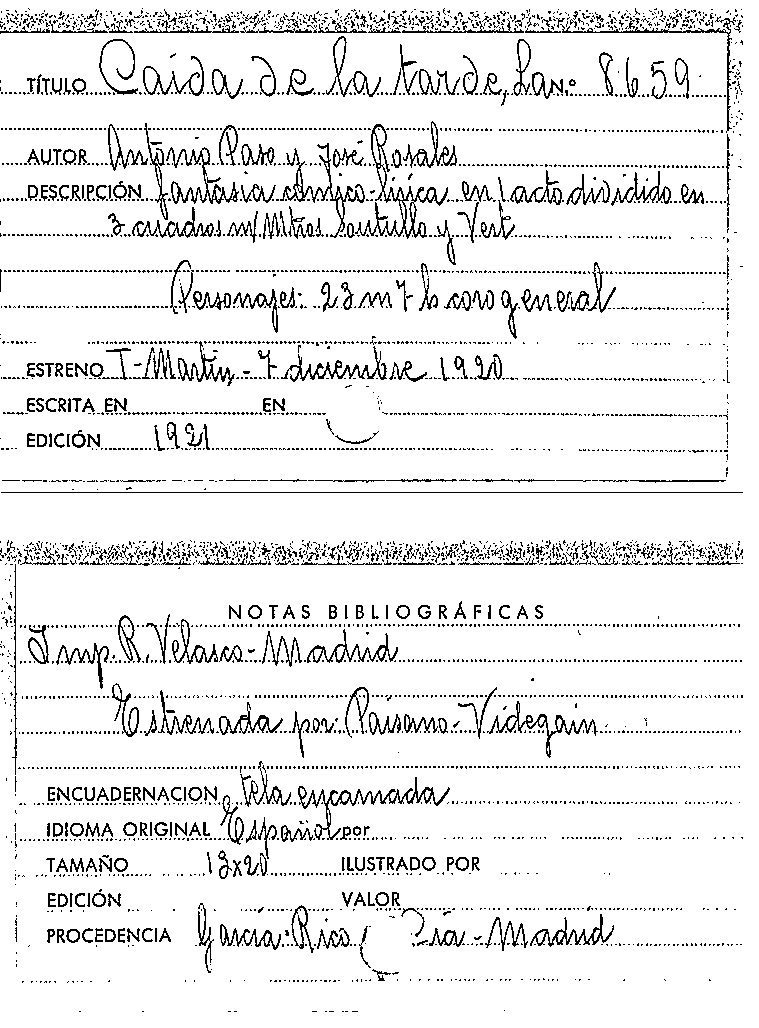 TÍTULO Caida de la tarde, La N.º 8659
AUTOR Antonio Paso y José Rosales
DESCRIPCIÓN fantasia cómico-lírica en 1 acto dividido en
3 cuadros m/ Mtros Soutullo y Vert
Personajes: 23 m 7 h coro general
ESTRENO T-Martin - 7 diciembre 1920
ESCRITA EN EN
EDICIÓN 1921
NOTAS BIBLIOGRÁFICAS
Imp. R. Velasco-Madrid
Estrenada por: Paisano-Videgain
ENCUADERNACION tela encarnada
IDIOMA ORIGINAL Español por
TAMAÑO 13x20 ILUSTRADO POR
EDICIÓN VALOR
PROCEDENCIA García-Rico Cía-Madrid